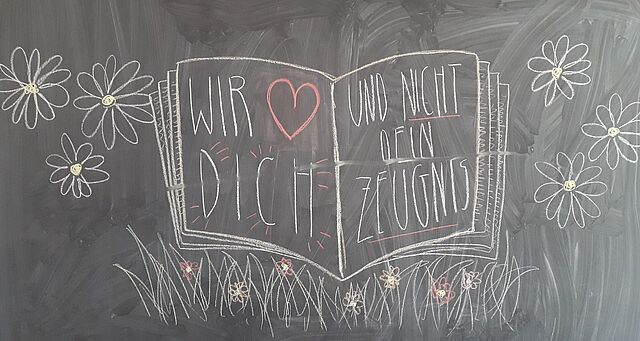 WIR ♥
DICH
UND NICHT
DEIN
ZEUGNIS